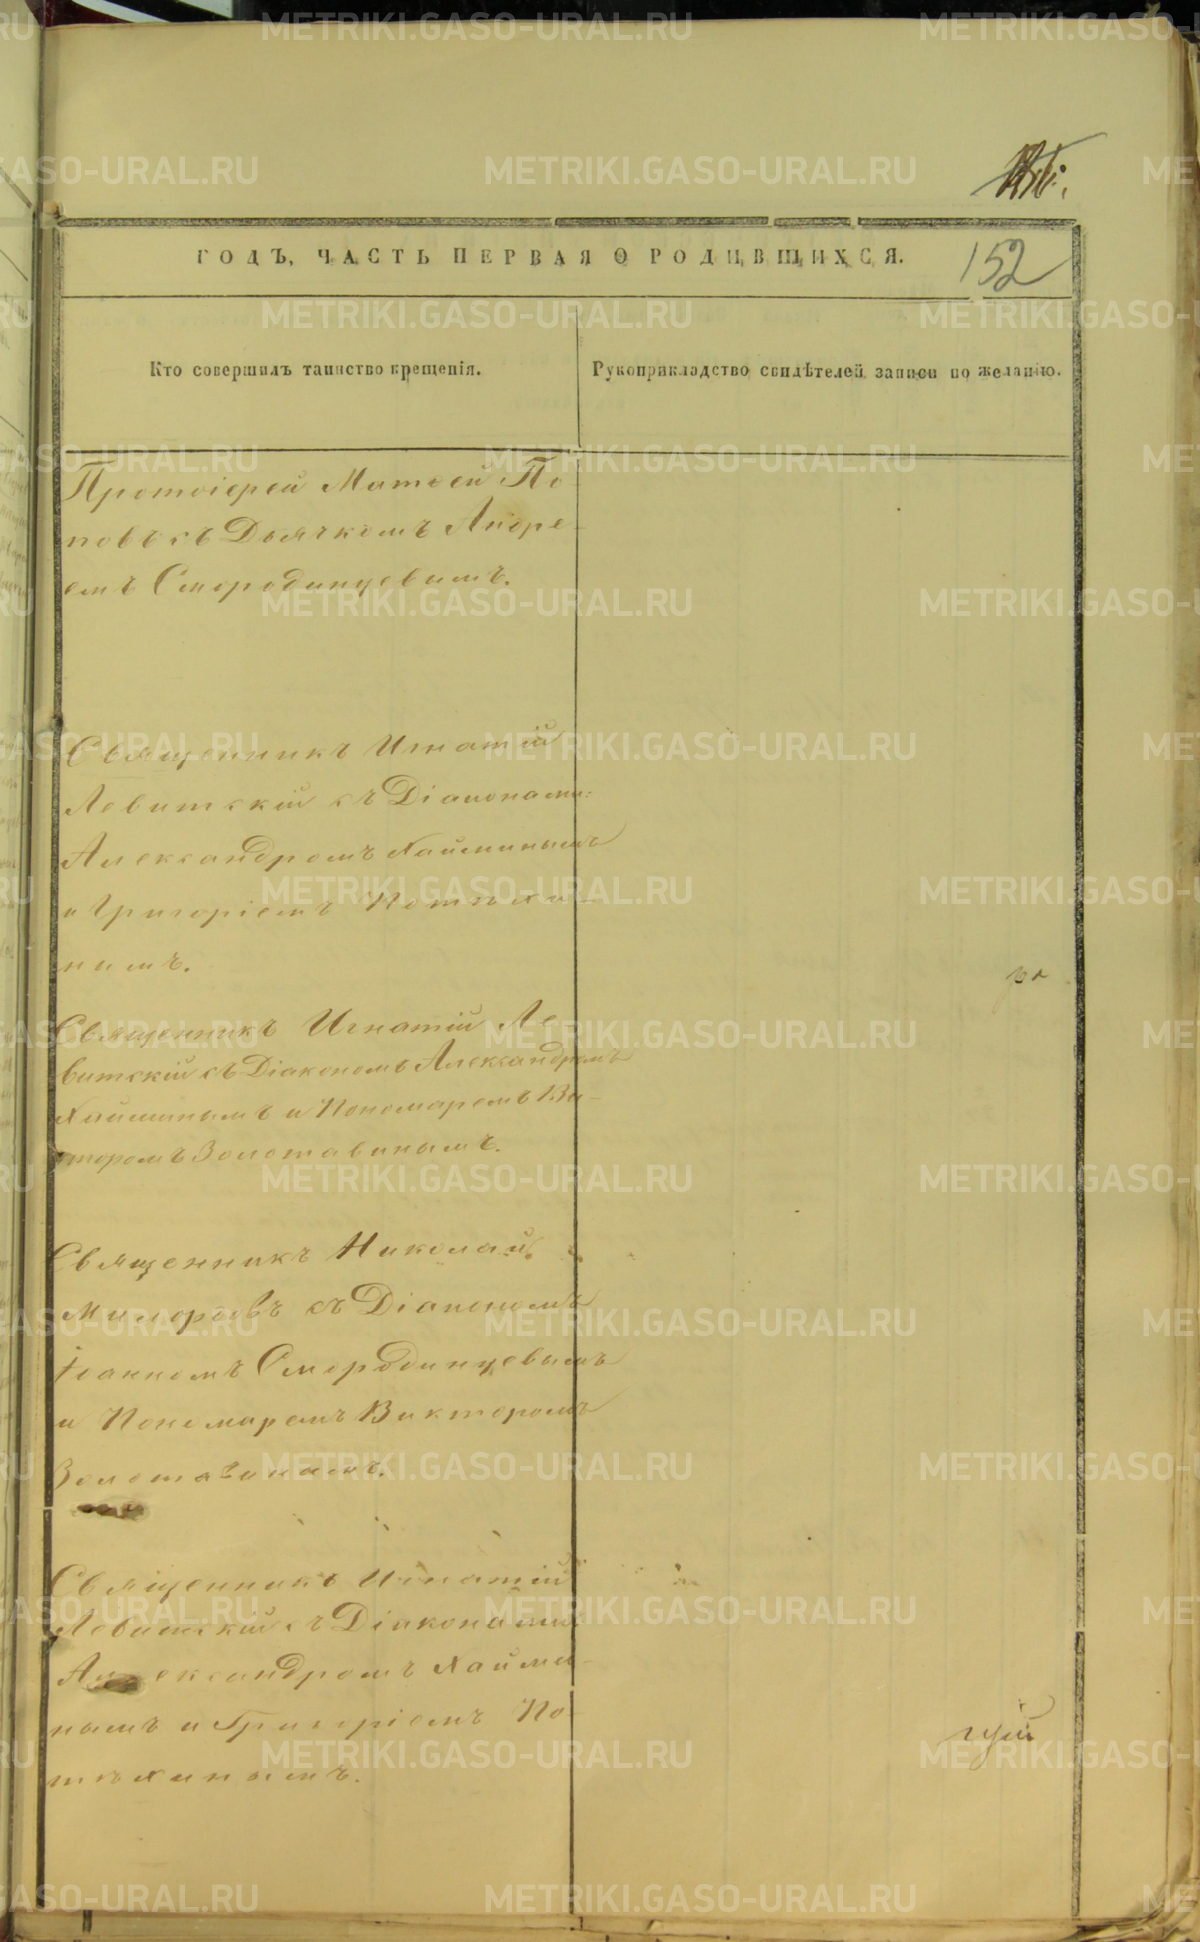 152
ГОДЪ, ЧАСТЬ ПЕРВАЯ О РОДИВШИХСЯ.
Кто совершилъ таинство крещенія.
Рукоприкладство свидѣтелей записи по желанію.
Протоіерей Матѳей По
повъ съ Дьячкомъ Андре-
емъ Смородинцевымъ.
Священникъ Игнатій
Левитскій съ Діаконами:
Александромъ Хайминымъ
и Григоріемъ Потѣхи-
нымъ.
Священникъ Игнатій Ле
витскій съ Діакономъ Александромъ
Хайминымъ и Пономаремъ Ви-
кторомъ Золотавинымъ.
Священникъ Николай
съ Діакономъ
Іоанномъ Смородинцевымъ
и Пономаремъ Викторомъ
Золотавинымъ.
Священникъ Игнатій
Левитскій съ Діаконами
Александромъ Хайми-
нымъ и Григоріемъ По-
тѣхинымъ.
METRIKI.GASO-URAL.RU